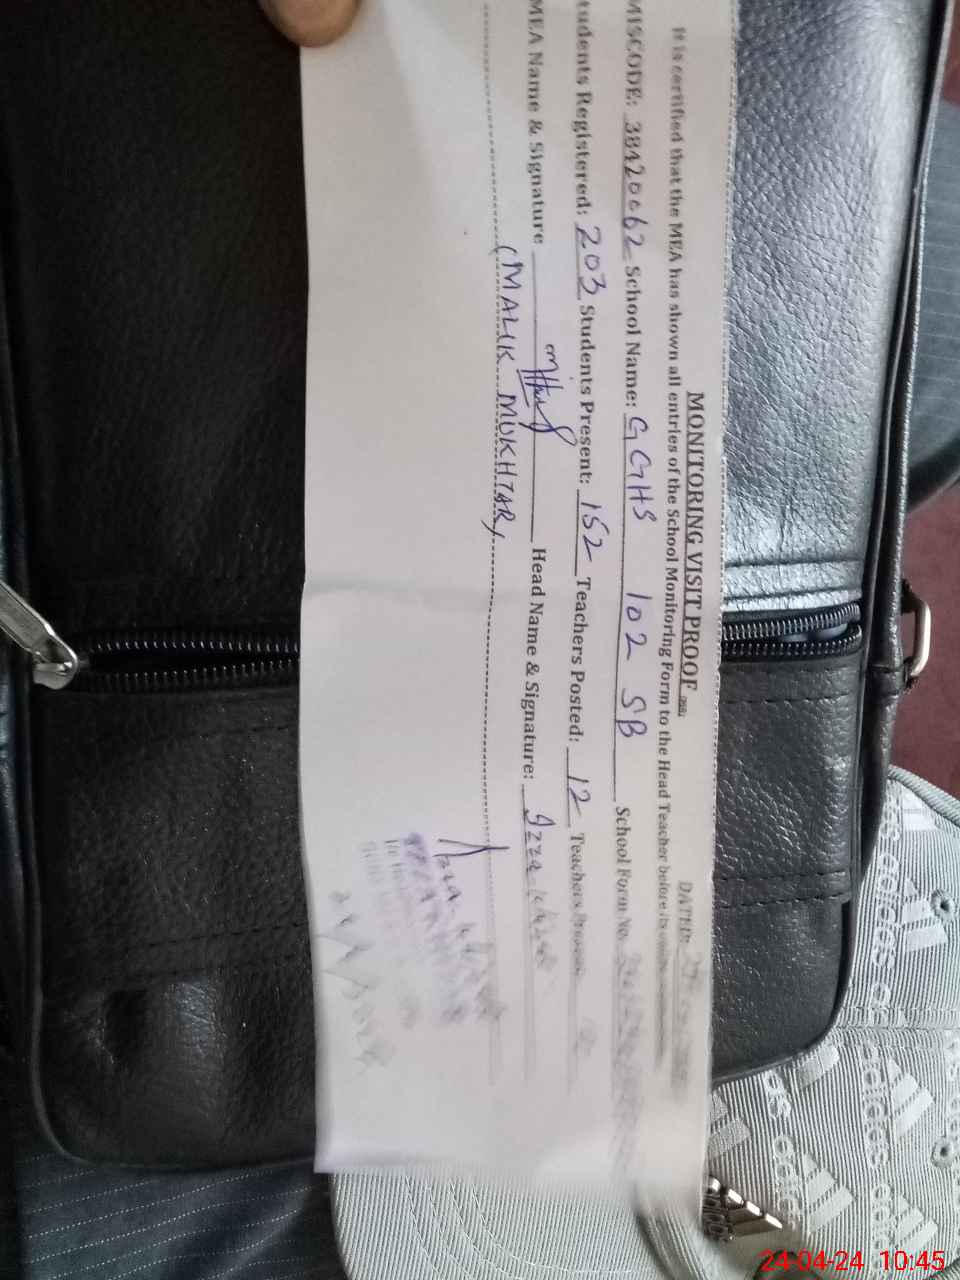 MONITORING VISIT PROOF
DATED:
It is certified that the MEA has shown all entries of the School Monitoring Form to the Head Teacher before its
EMISCODE: 38420062 School Name: GGHS 102 SB School Form No.
Students Registered: 203 Students Present: 152 Teachers Posted: 12 Teachers
MEA Name & Signature Head Name & Signature: Izza
(MALIK MUKHTAR)
adidas
24-04-24 10:45